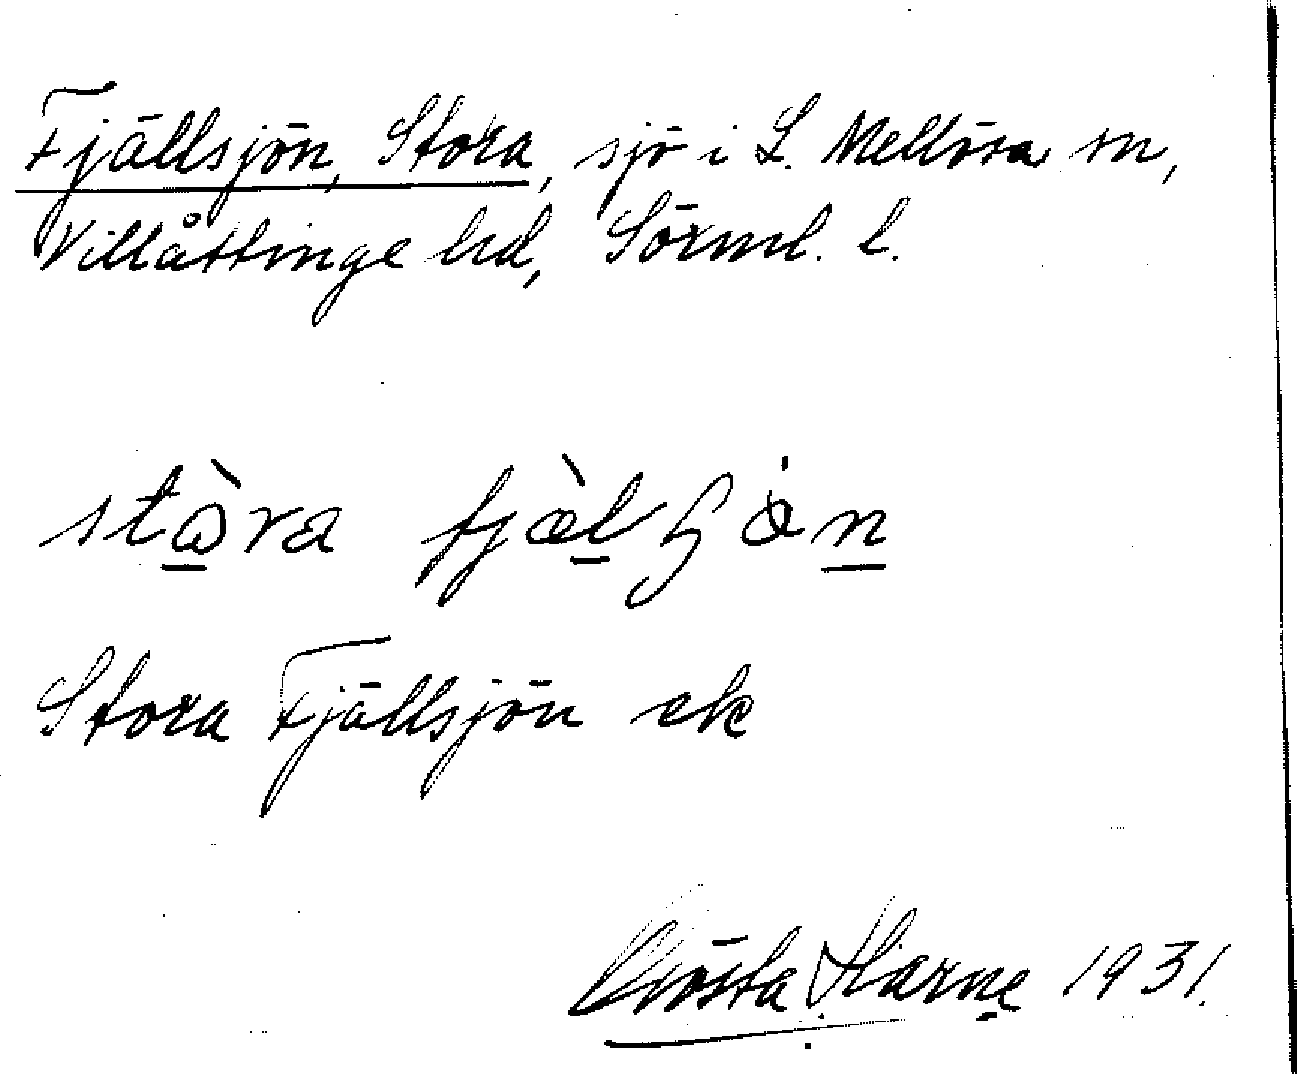 Fjällsjön, Stora, sjö i L. Mellösa sn,
Villåttinge hd, Sörml. l.
stɷ̀ra fjæ̀lɧö̇n
Stora Fjällsjön ek
Gösta Harne 1931.